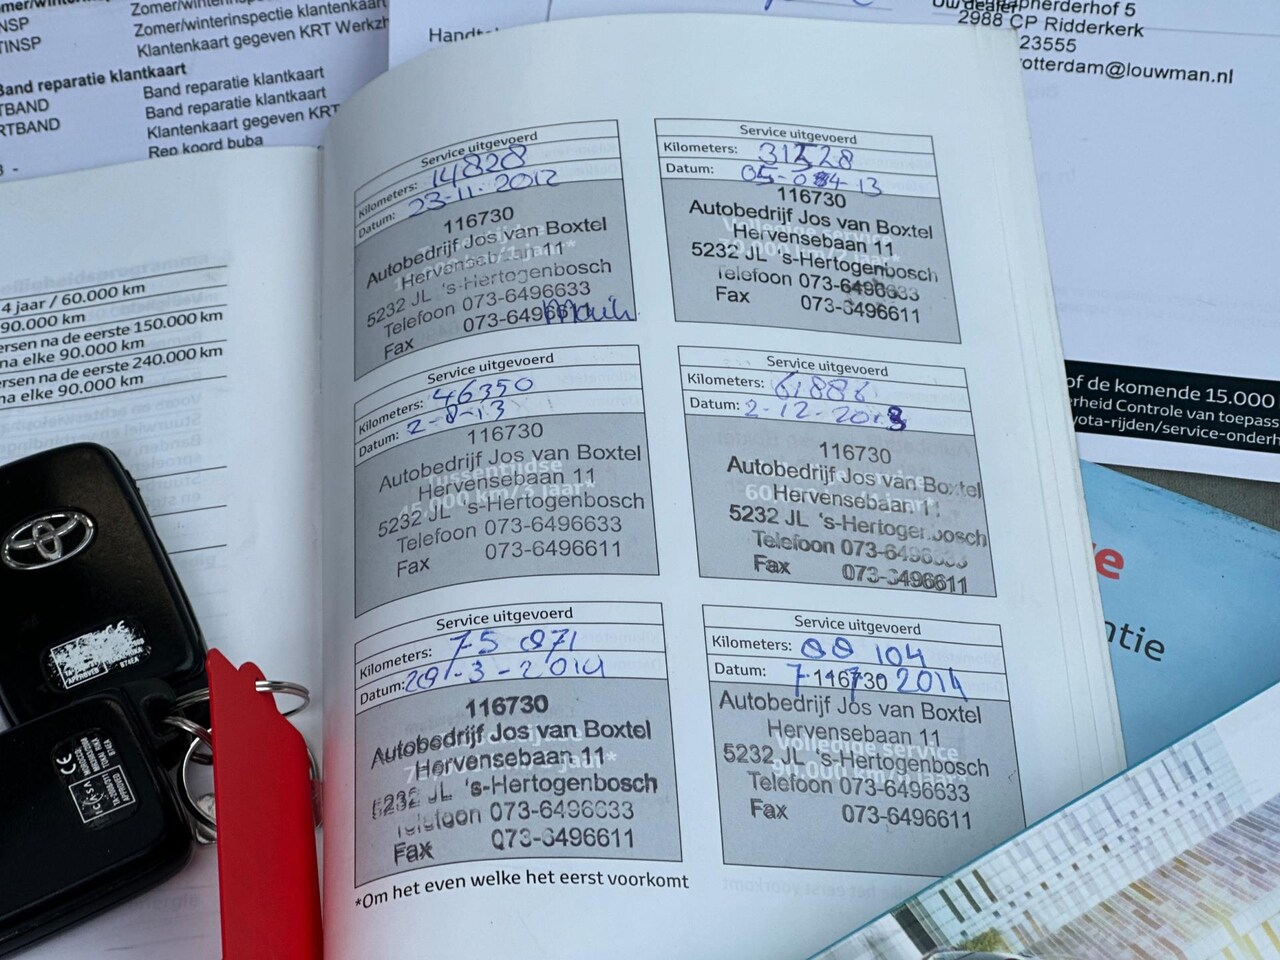 Zomer/winterinspectie klantenkaart
NSP
Zomer/winterinspectie klantenkaart
TINSP
Klantenkaart gegeven KRT
Band reparatie klantkaart
TBAND
Band reparatie klantkaart
RTBAND
Band reparatie klantkaart
Klantenkaart gegeven KRT
Rep koord buba
herderhof 5
2988 CP Ridderkerk
23555
otterdam@louwman.nl
4 jaar / 60.000 km
90.000 km
ersen na de eerste 150.000 km
na elke 90.000 km
ersen na de eerste 240.000 km
elke 90.000 km
Service uitgevoerd
Kilometers: 14828
Datum: 23-11-2012
116730
Autobedrijf Jos van Boxtel
Hervensebaan 11
5232 JL 's-Hertogenbosch
Telefoon 073-6496633
Fax 073-6496611
Service uitgevoerd
Kilometers: 31528
Datum: 05-04-13
116730
Autobedrijf Jos van Boxtel
Hervensebaan 11
5232 JL 's-Hertogenbosch
Telefoon 073-6496633
Fax 073-6496611
Service uitgevoerd
Kilometers: 46350
Datum: 2-8-13
116730
Autobedrijf Jos van Boxtel
Hervensebaan 11
5232 JL 's-Hertogenbosch
Telefoon 073-6496633
Fax 073-6496611
Service uitgevoerd
Kilometers: 61886
Datum: 2-12-2013
116730
Autobedrijf Jos van Boxtel
Hervensebaan 11
5232 JL 's-Hertogenbosch
Telefoon 073-6496633
Fax 073-6496611
Service uitgevoerd
Kilometers: 75 871
Datum: 28-3-2014
116730
Autobedrijf Jos van Boxtel
Hervensebaan 11
5232 JL 's-Hertogenbosch
Telefoon 073-6496633
Fax 073-6496611
Service uitgevoerd
Kilometers: 88 104
Datum: 7-7-2014
116730
Autobedrijf Jos van Boxtel
Hervensebaan 11
5232 JL 's-Hertogenbosch
Telefoon 073-6496633
Fax 073-6496611
*Om het even welke het eerst voorkomt
of de komende 15.000
erheid Controle van toepass
yota-rijden/service-onderh
e
ntie